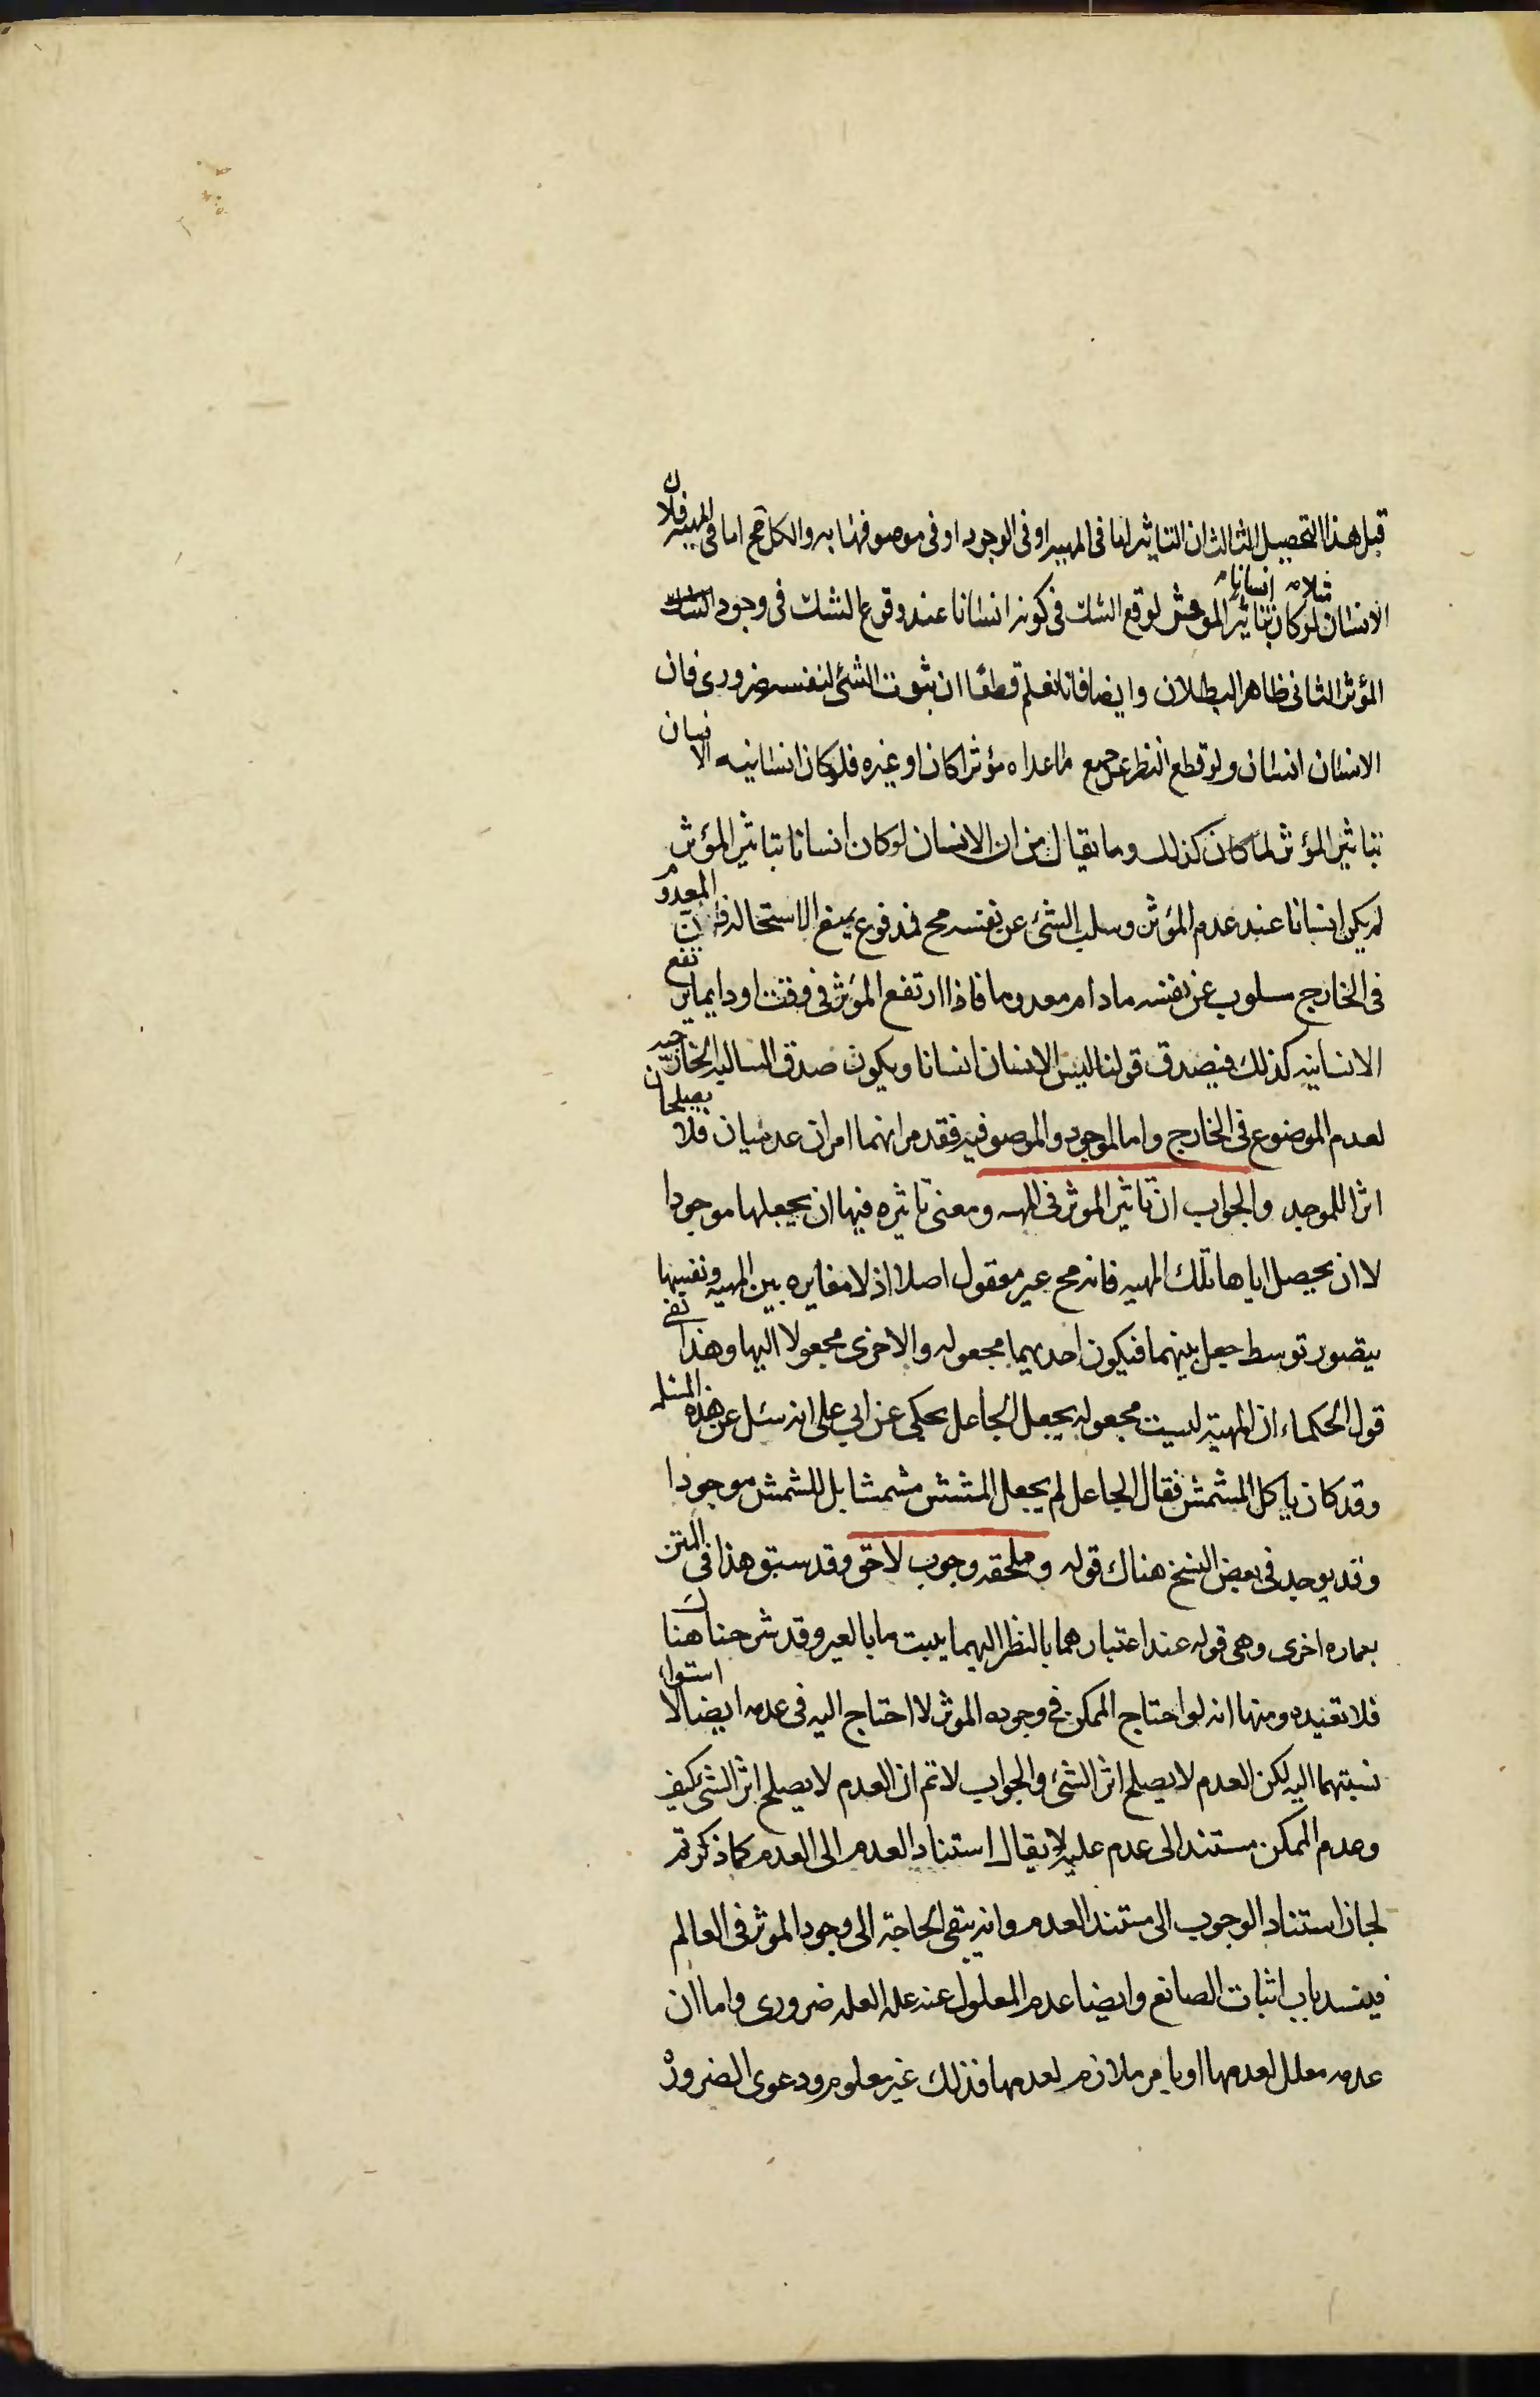 قبل هذا التحصيل الثالث ان التاثير اما فى المهيه او فى الوجود او فى موصوفيتها به والكل مح اما فى المهيه فلان
الانسان مثلا لو كان انسانا بتاثير المؤثر لوقع الشك فى كونه انسانا عند وقوع الشك فى وجود
المؤثر الثانى ظاهر البطلان وايضا فانا نعلم قطعا ان ثبوت الشئ لنفسه ضرورى فان
الانسان انسان ولو قطع النظر عن جميع ما عداه مؤثرا كان او غيره فلو كان انسانيه الانسان
بتاثير المؤثر لما كان كذلك وما يقال من ان الانسان لو كان انسانا بتاثير المؤثر
لم يكن انسانا عند عدم المؤثر وسلب الشئ عن نفسه مح فمدفوع بمنع الاستحاله فان المعدوم
فى الخارج مسلوب عن نفسه مادام معدوما فاذا ارتفع المؤثر فى وقت او دايما يرتفع
الانسانيه كذلك فيصدق قولنا ليس الانسان انسانا ويكون صدق السالبه الخارجيه
لعدم الموضوع فى الخارج واما الموجود والموصوفيه فقد مر انهما امران عدميان فلا يصلحان
اثرا للموجد والجواب ان تاثير الموثر فى المهيه ومعنى تاثيره فيها ان يجعلها موجودا
لا ان يحصل اياها تلك المهيه فانه مح غير معقول اصلا اذ لا مغايره بين المهيه ونفسها
يتصور توسط جعل بينهما فيكون احديهما مجعوله والاخرى مجعولا اليها وهذا
قول الحكماء ان المهية ليست مجعوله بجعل الجاعل يحكى عن ابي على انه سئل عن هذه المسئله
وقد كان يأكل المشمش فقال الجاعل لم يجعل المشمش مشمشا بل المشمش موجودا
وقد يوجد فى بعض النسخ هناك قوله وملحقه وجوب لاحق وقد سبق هذا فى المتن
بعباره اخرى وهى قوله عند اعتبارهما بالنظر اليهما يثبت ما بالغير وقد شرحناه هناك
فلا نعيده ومنها انه لو احتاج الممكن فى وجوده الموثر لاحتاج اليه فى عدمه ايضا لاستواء
نسبتهما اليه لكن العدم لا يصلح اثر الشئ والجواب لا نم ان العدم لا يصلح اثر الشئ كيف
وعدم الممكن مستند الى عدم علته لا يقال استناد العدم الى العدم كما ذكرتم
لجاز استناد الوجوب الى مستند العدم وانه ينقى الحاجة الى وجود الموثر فى العالم
فينسد باب اثبات الصانع وايضا عدم المعلول عند عدم العله ضرورى واما ان
عدمه معلل لعدمها او بامر ملازم لعدمها فذلك غير معلوم ودعوى الضرورة